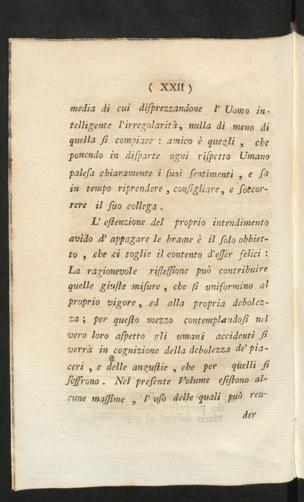 ( XXII )
media di cui disprezzandone l' Uomo in-
telligente l'irregolarità, nulla di meno di
quella si compiace : amico è quegli , che
ponendo in disparte ogni rispetto Umano
palesa chiaramente i suoi sentimenti , e sa
in tempo riprendere , consigliare, e soccor-
rere il suo collega .
L' estenzione del proprio intendimento
avido d' appagare le brame è il solo obbiet-
to , che ci toglie il contento d'esser felici :
La ragionevole riflessione può contribuire
quelle giuste misure , che si uniformino al
proprio vigore , ed alla propria debolez-
za ; per questo mezzo contemplandosi nel
vero loro aspetto gli umani accidenti si
verrà in cognizione della debolezza de' pia-
ceri , e delle angustie , che per quelli si
soffrono . Nel presente Volume esistono al-
cune massime , l' uso delle quali può ren-
der